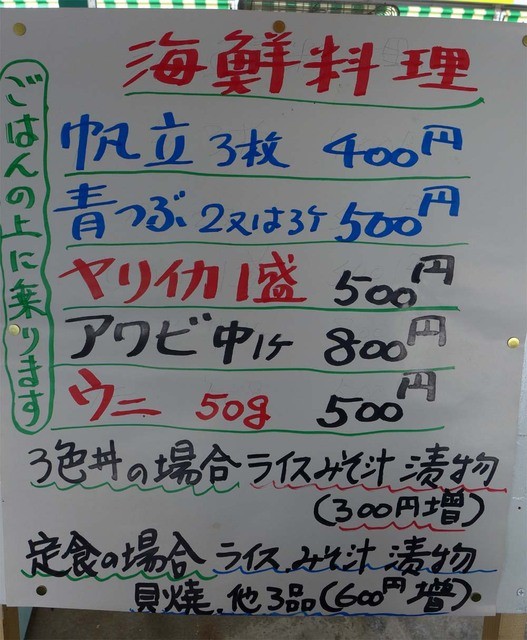 海鮮料理
ごはんの上に乗ります
帆立 3枚 400円
青つぶ 2又は3ケ 500円
ヤリイカ 1盛 500円
アワビ 中1ケ 800円
ウニ 50g 500円
3色丼の場合 ライスみそ汁 漬物
(300円増)
定食の場合 ライス.みそ汁 漬物
貝焼.他3品(600円増)